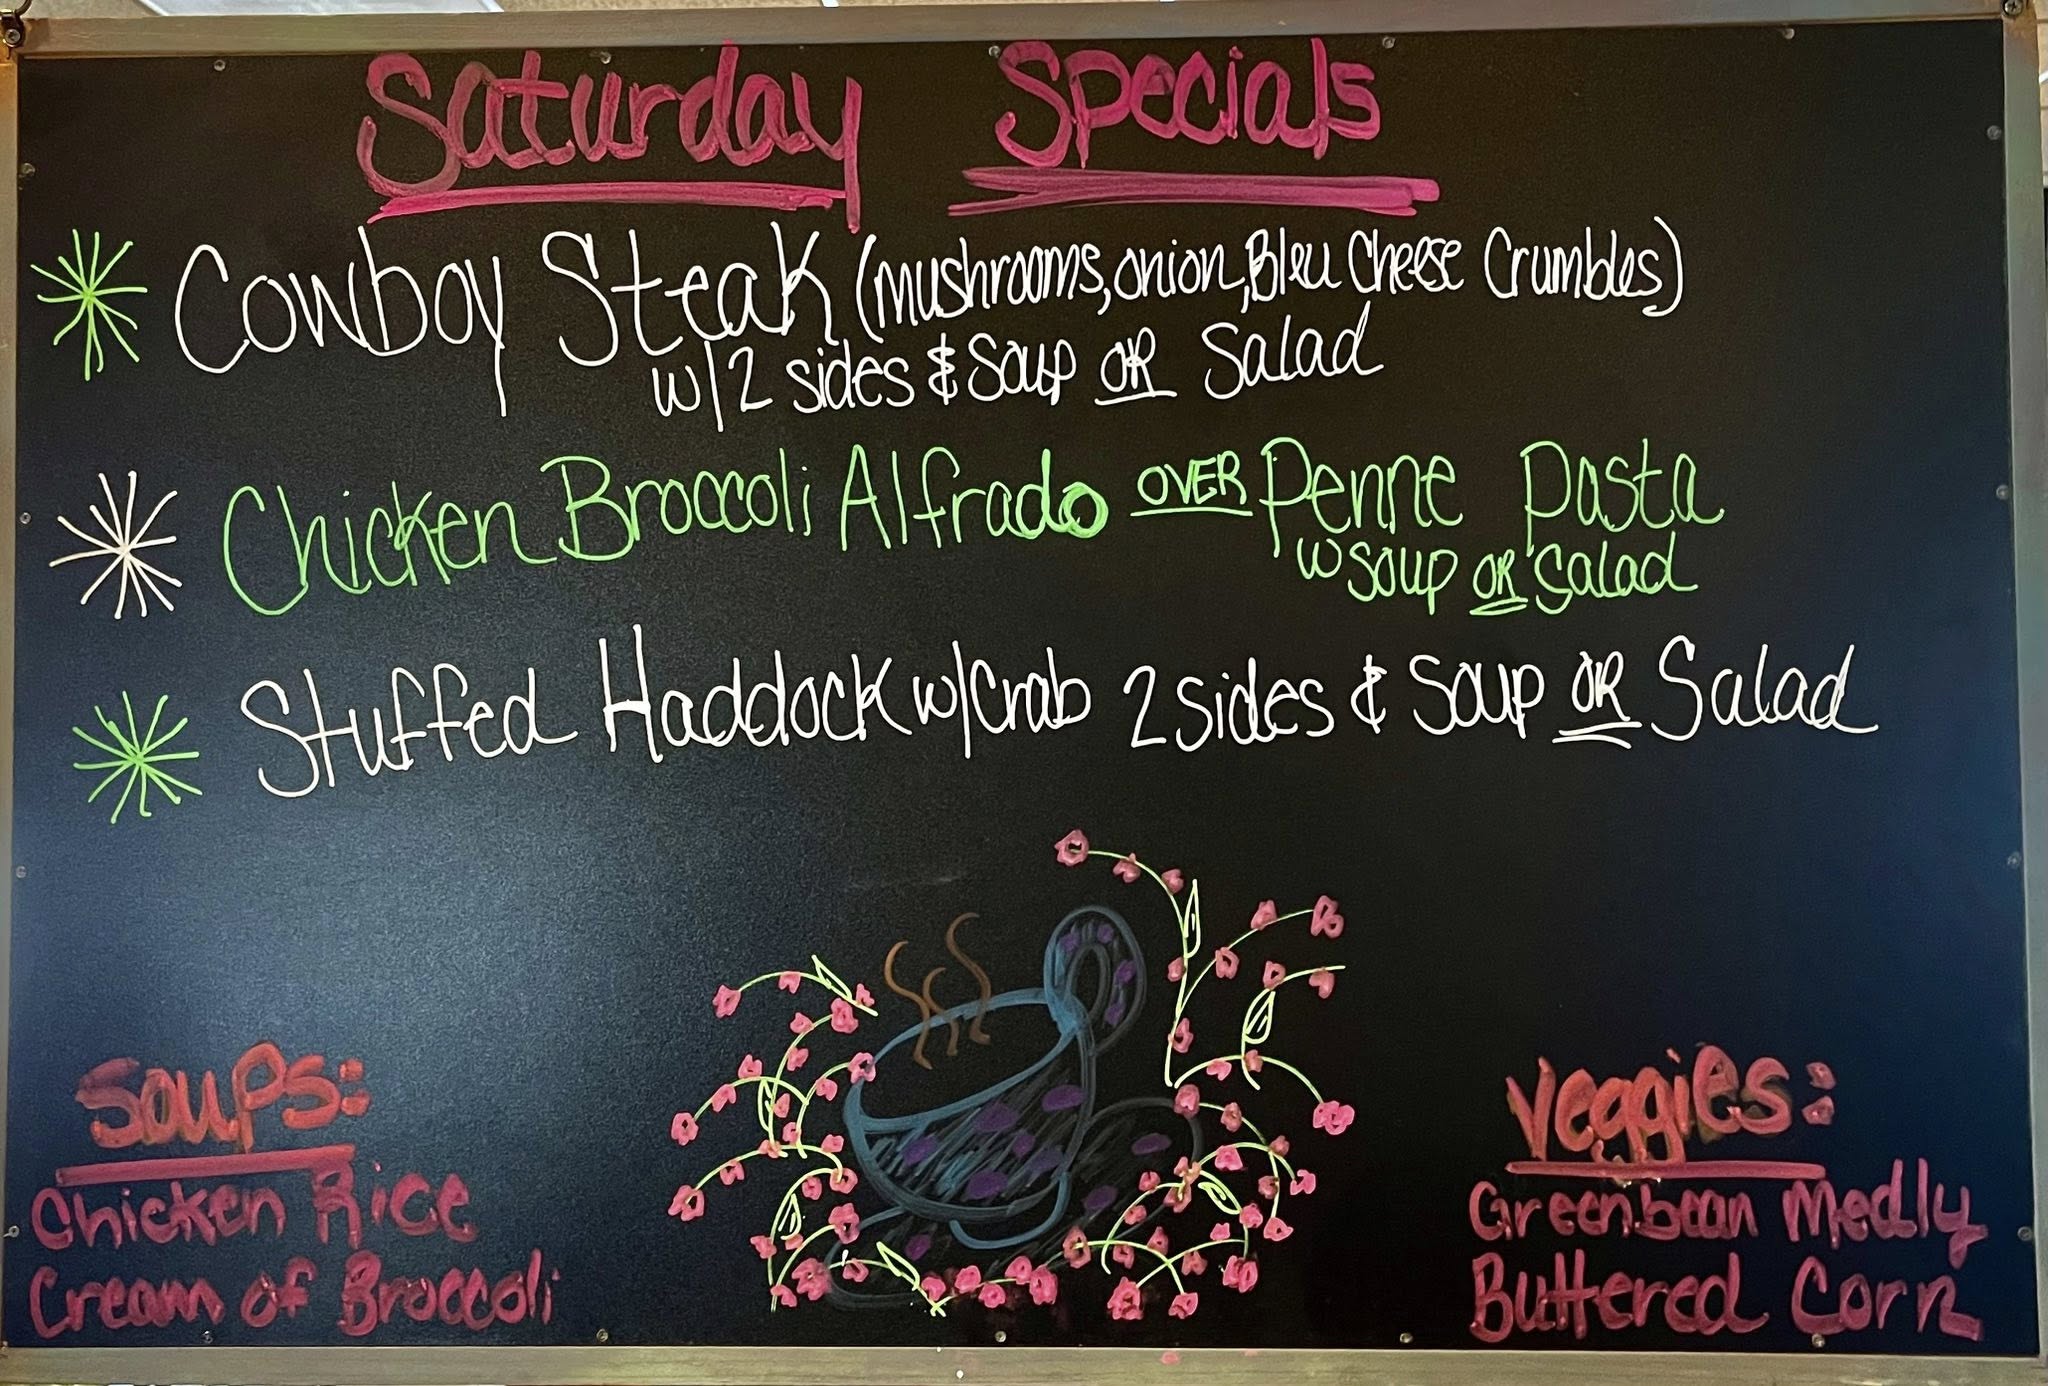 Saturday Specials
Cowboy Steak (mushrooms, onion, Bleu Cheese Crumbles)
w/2 sides & Soup OR Salad
Chicken Broccoli Alfrado OVER Penne Pasta
w soup OR Salad
Stuffed Haddock w/Crab 2 sides & Soup OR Salad
Soups:
Chicken Rice
Cream of Broccoli
Veggies:
Greenbean Medly
Buttered Corn